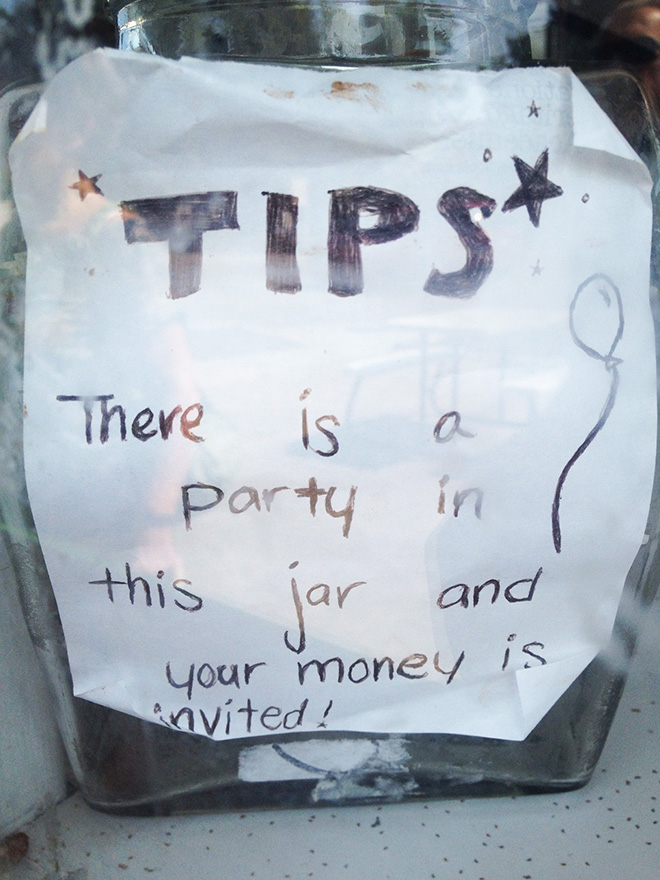 TIPS
There is a
party in
this jar and
your money is
invited!